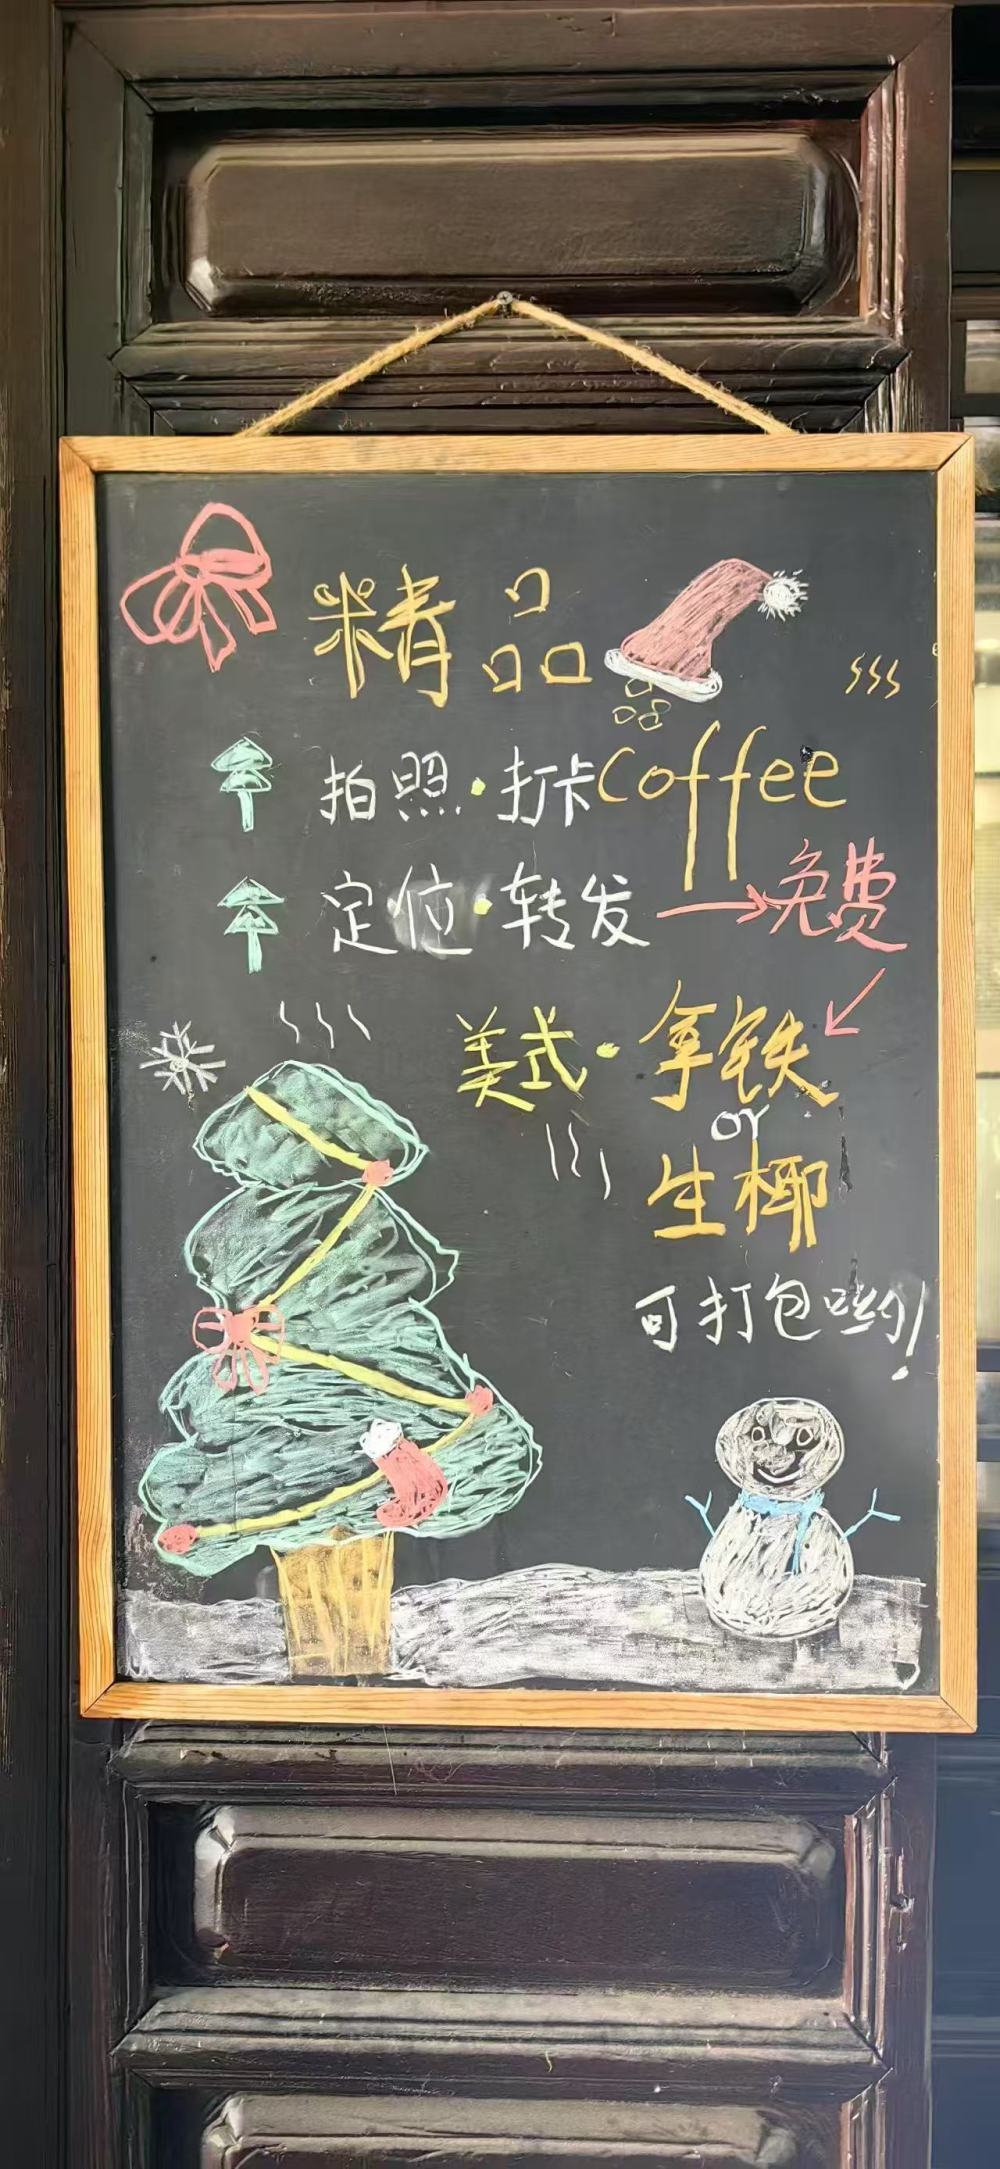 精品
拍照·打卡Coffee
定位·转发→免费
美式·拿铁
or
生椰
可打包哟!